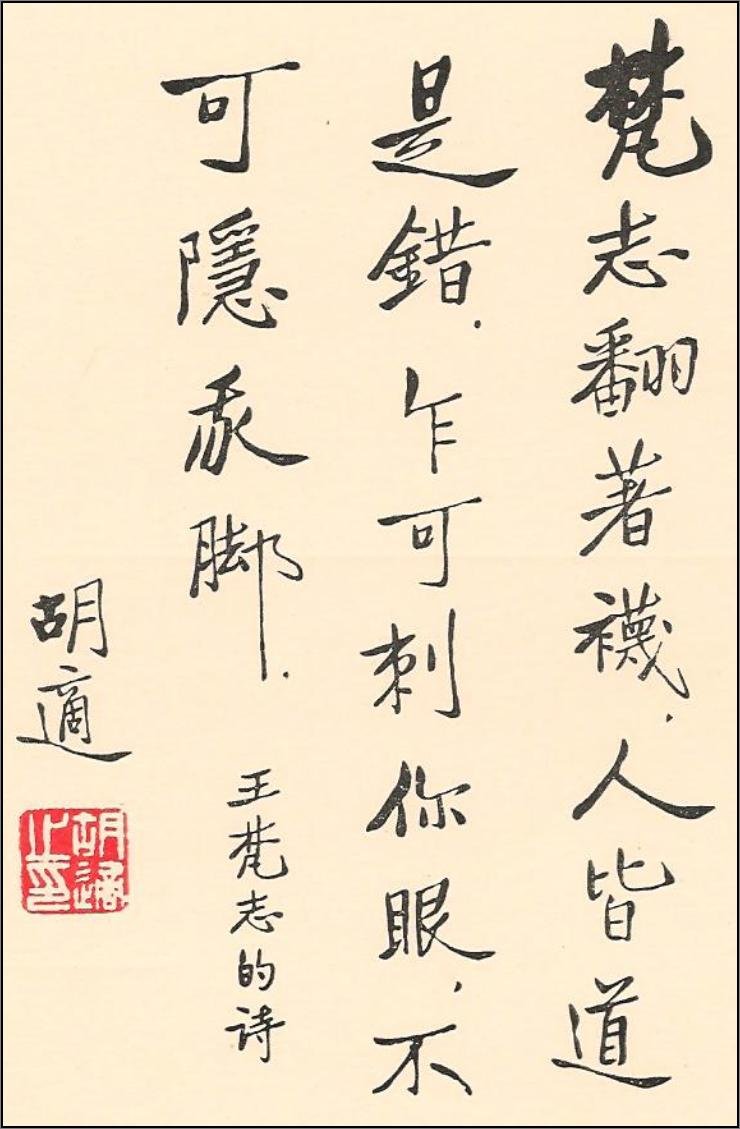 梵志翻著襪，人皆道
是錯．乍可刺你眼，不
可隱我脚．
王梵志的诗
胡適
胡適之印